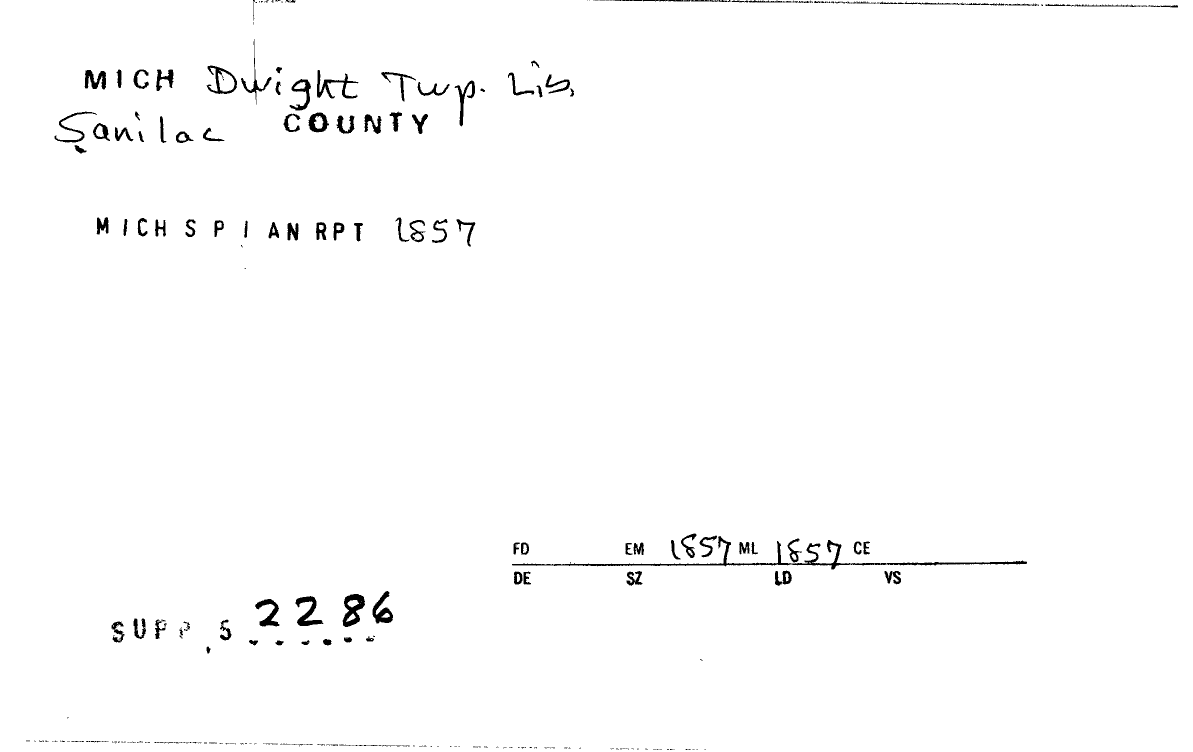 MICH Dwight Twp. Lib.
Sanilac COUNTY
MICH S P I AN RPT 1857
FD EM 1857 ML 1857 CE
DE SZ LD VS
SUPP, S 2286